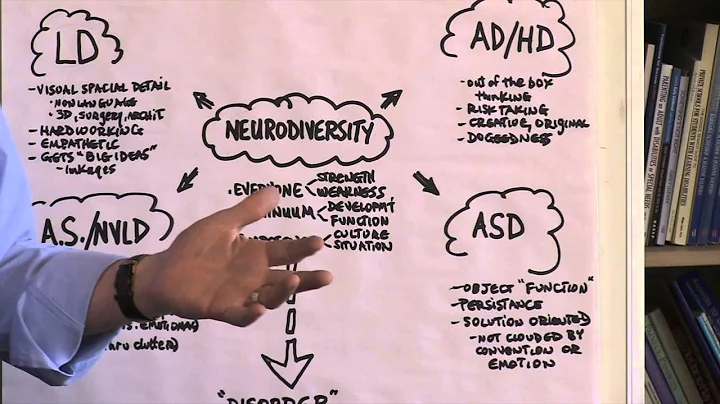 LD
- VISUAL SPACIAL DETAIL
• NON LANGUAGE
• 3D, SURGERY, ARCHIT
- HARDWORKING
- EMPATHETIC
- GETS "BIG IDEAS"
- linkages
AD/HD
- OUT OF THE BOX
THINKING
- RISK TAKING
- CREATIVE, ORIGINAL
- DOGGEDNESS
NEURODIVERSITY
• EVERYONE < STRENGTH
WEAKNESS
INUUM < DEVELOPMT
FUNCTION
< CULTURE
SITUATION
A.S./NVLD
S. EMOTIONAL)
RU CLUTTER)
ASD
- OBJECT "FUNCTION"
- PERSISTANCE
- SOLUTION ORIENTED
- NOT CLOUDED BY
CONVENTION OR
EMOTION
"DISORDER"